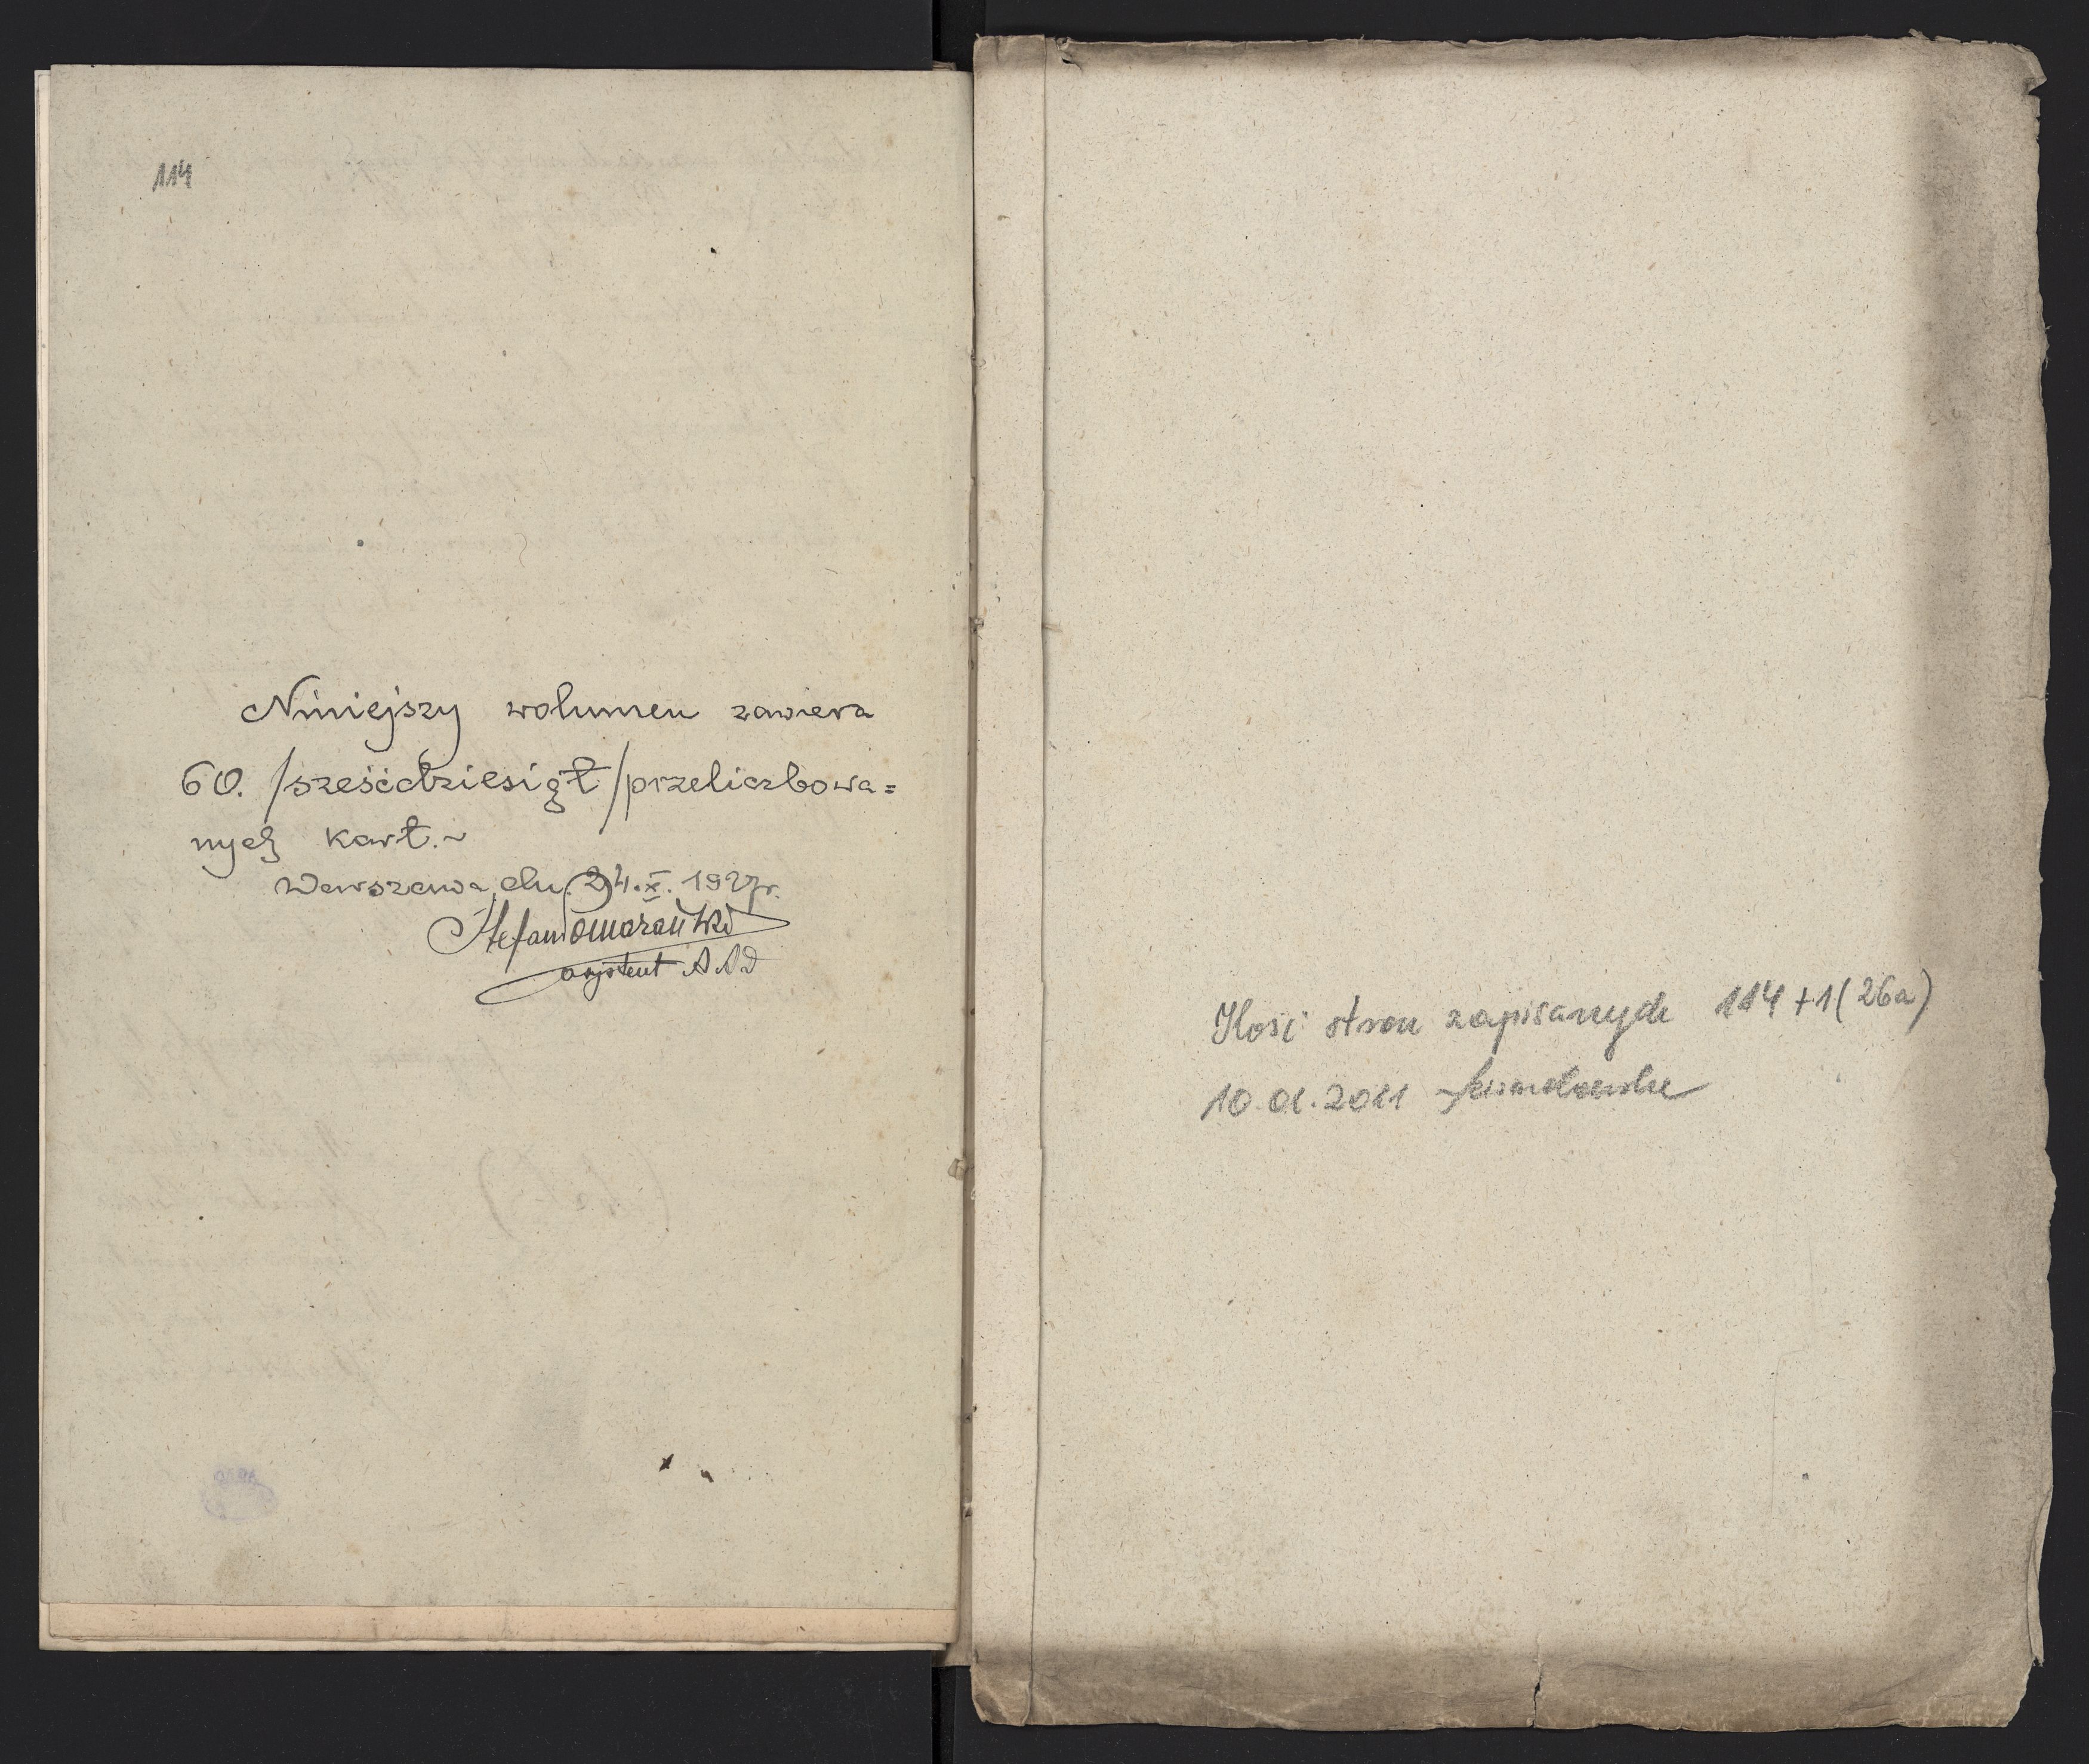 114
Niniejszy wolumen zawiera
60. /sześćdziesiąt/ przeliczbowa=
nych kart.~
Warszawa, dn. 24.X. 1927r.
Stefan Pomarański
asystent A A D
Ilość stron zapisanych 114 + 1 (26a)
10.01.2011